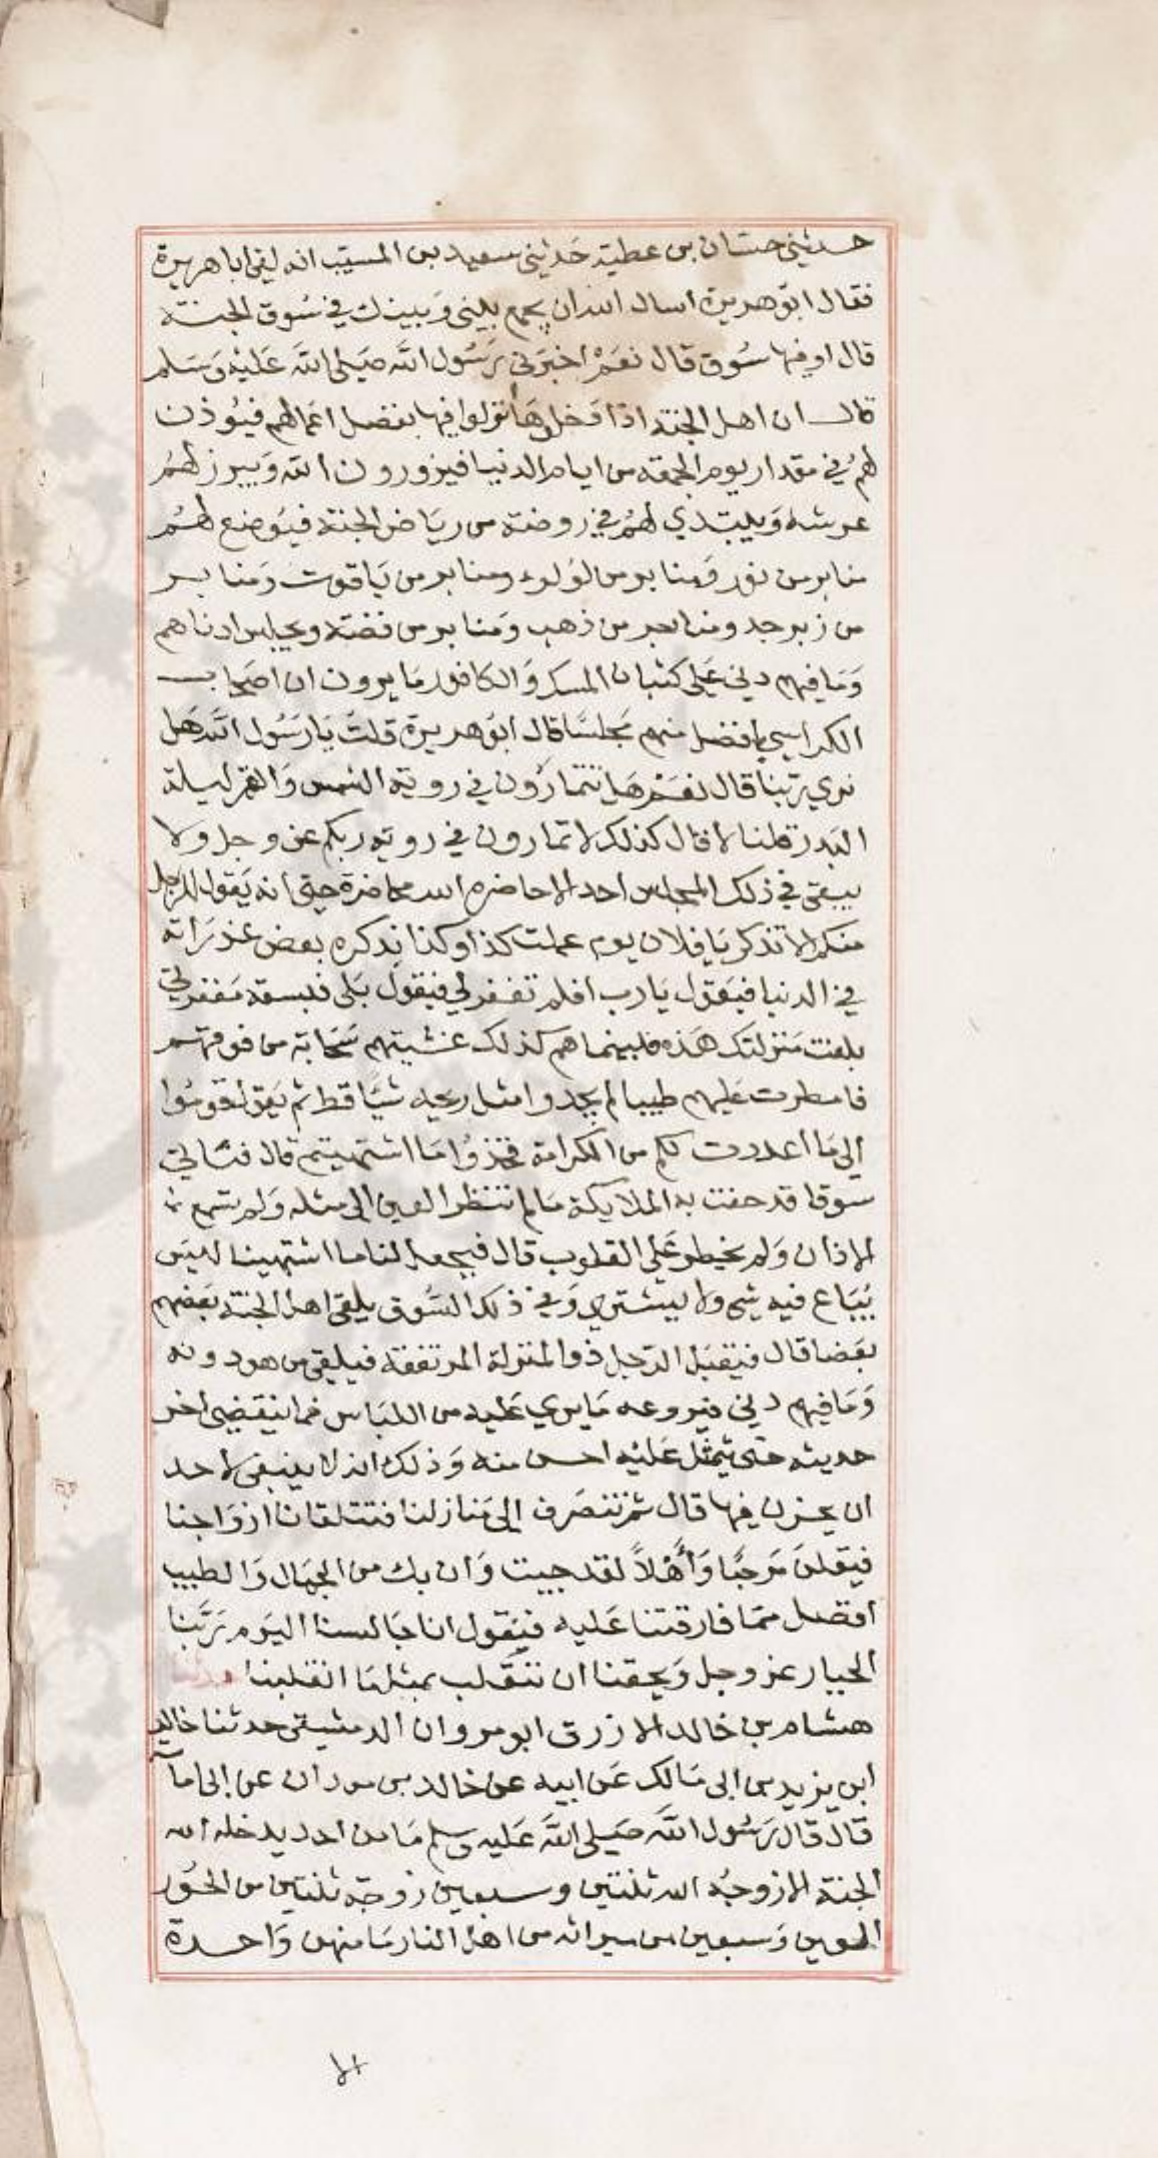 حدثني حسان بن عطية حَدثيني سعيد بن المسيّب انه لقي ابا هريرة
فقال ابو هريرة اسال الله ان يجمع بيني وَبينك في سُوق الجنة
قال او فيها سُوق قال نعَمْ اخبرَني رَسُول الله صَلى اللهَ عَليْه وَسَلم
قال ان اهل الجنة اذا دَخلوهَا نزلوا فيها بفضل اعمالهم فيُوذن
لهُم في مقدار يوم الجمعة من ايام الدنيا فيزورون الله وَيبرز لهُم
عرشه وَيتبدي لهُم في روضة من ريَاض الجنة فيُوضع لهُم
منابر من نور وَمنابر من لؤلوء ومنابر من يَاقوت وَمنابر
من زبرجد ومنابر من ذهب وَمنابر من فضة ويجلس ادناهم
وَمَا فيهم دني عَلى كثبان المسك وَالكافور مَا يرون ان اصحَاب
الكراسي بافضل منهم مَجلسًا قال ابوُ هريرة قلتُ يَارَسُول اللهَ هَل
نري رَبّنا قال نعَمْ هَل تتمارَوُن في روية الشمس وَالقمر ليلة
البَدر قلنا لا قال كذلك لا تمارون في روية ربكم عز وجل ولا
يبقى في ذلك المجلس احد الا حاضره الله محاضرة حتى انه يَقول للرجل
منكم الا تذكر يَا فلان يوم عملت كذا وكذا يذكره بعض غدرَاته
في الدنيا فيَقول يَا رب افلم تغفر لي فيقول بَلى فبسعة مَغفرتي
بلغت مَنزلتك هَذه فبينما هم كذلك غشيتهم سَحَابة من فوقهم
فامطرت عَليهم طيبا لم يجدوا مثل ريحه شيًا قط ثم يَقول قومُوا
الي مَا اعددت لكم من الكرامة فخذوُا مَا اشتهيتم قال فنَاتي
سوقا قد حفت به الملايكة مَا لم تنظر العين الى مثله وَلم تسمع
الاذان وَلم يخطر عَلى القلوب قال فيجمعل لنا ما اشتهينا ليسَ
يُبَاع فيه شي ولا يشتري وَفي ذلك السُوق يلقي اهل الجنة بَعضهم
بعَضا قال فيقبَل الرَجل ذو المنزلة المرتفعة فيلقي من هو دونه
وَمَا فيهم دني فيروعه مَا يري عَليه من اللبَاس فما ينقضي اخر
حديثه حتى يتمثل عَليْه احسن منه وَذلك انه لا ينبغي لاحد
ان يحزن فيها قال ثم ننصَرف الي مَنازلنا فتتلقانا ازوَاجنا
فيَقلنَ مَرحبًا وَأهْلاً لقد جيت وَان بك من الجَمال وَالطيب
افضل ممَا فارقتنا عَليه فيَقول انا جَالسنا اليَوم رَبَّنا
الجبار عز وجل وَيحقنا ان ننقلب بمثل مَا انقلبنا حدثنا
هشام بن خالد الازرق ابو مروان الدمشقي حدثنا خالد
ابن يزيد بن ابي مَالك عَن ابيه عن خالد بن معدان عن ابي امامة
قال قال رَسُول اللهَ صَلى اللهَ عَليه وسلم مَا من احد يدخله الله
الجنة الا زوجهُ الله ثنتين وسبعين زوجة ثنتين من الحُور
العين وَسبعين من ميراثه من اهل النار مَا منهن وَاحدة